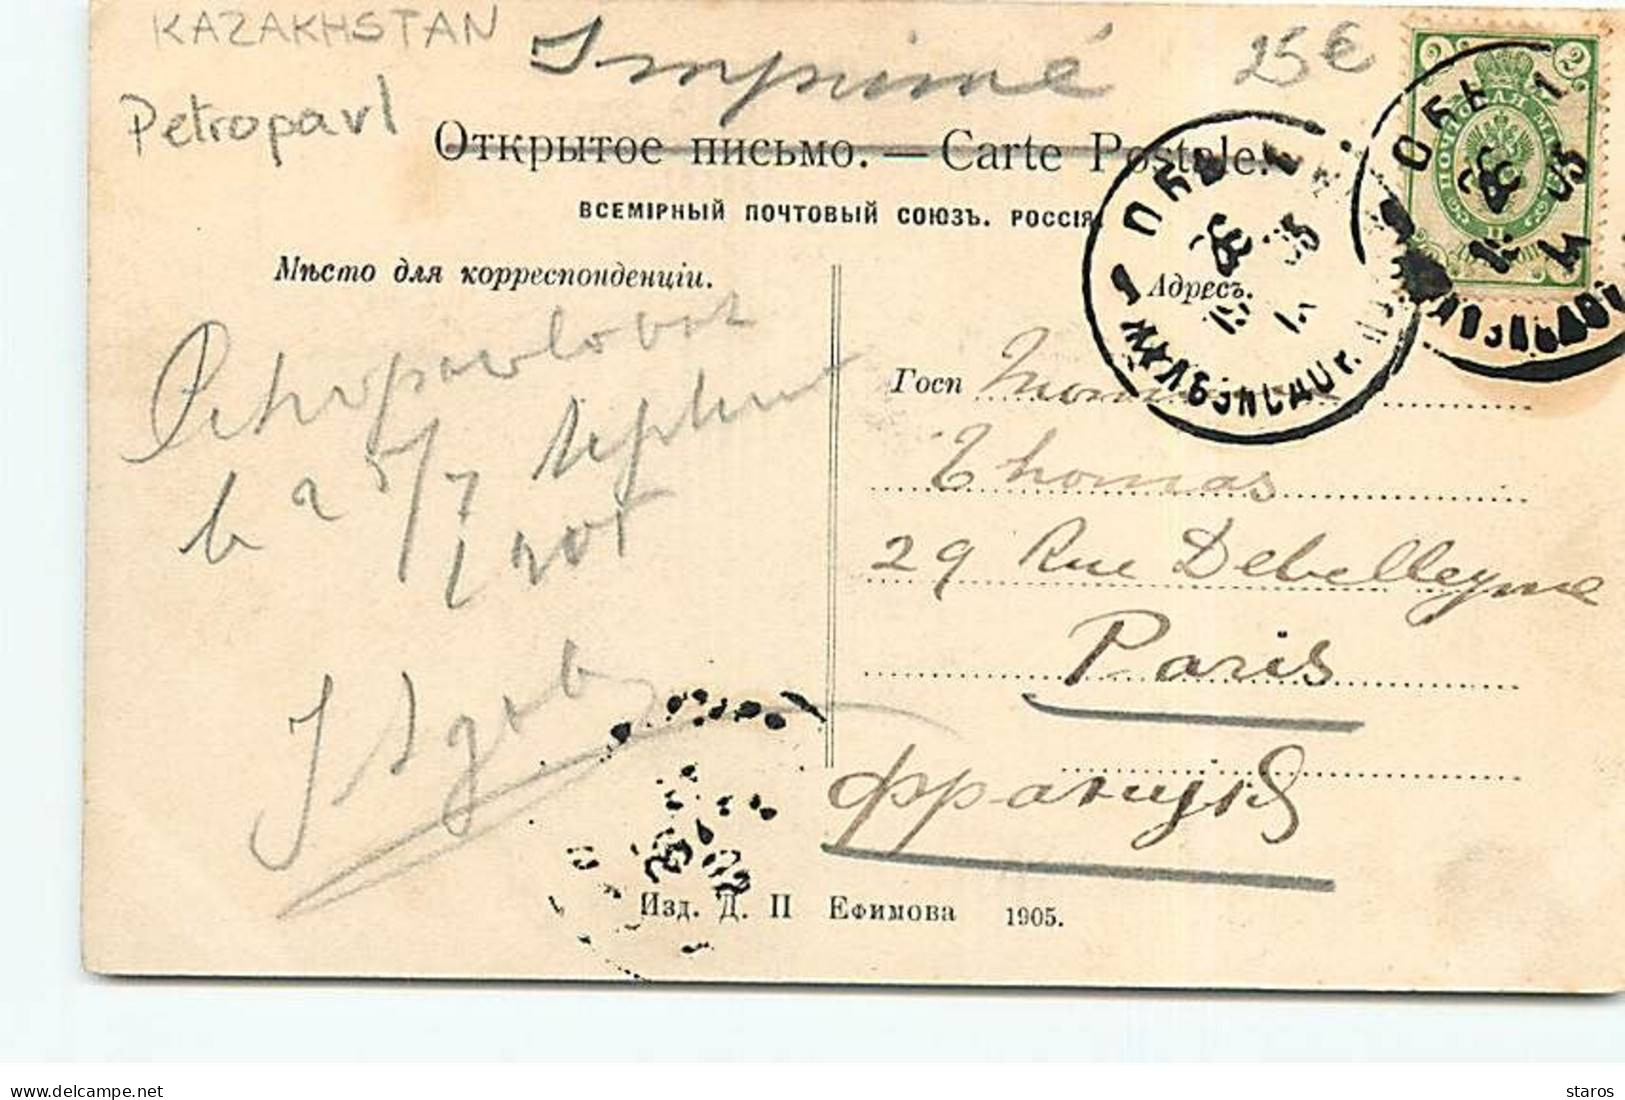 KAZAKHSTAN
Petropavl
Imprimé
25€
Открытое письмо. — Carte Postale.
ВСЕМІРНЫЙ ПОЧТОВЫЙ СОЮЗЪ. РОССІЯ.
Мѣсто для корреспонденціи.
Адресъ.
Petropavlovsk
le 25/7 Septembre
1905
Госп
Thomas
29 Rue Debelleyme
Paris
Франція
Изд. Д. П Ефимова 1905.
2 2
ПОЧТОВАЯ МАРКА
staros